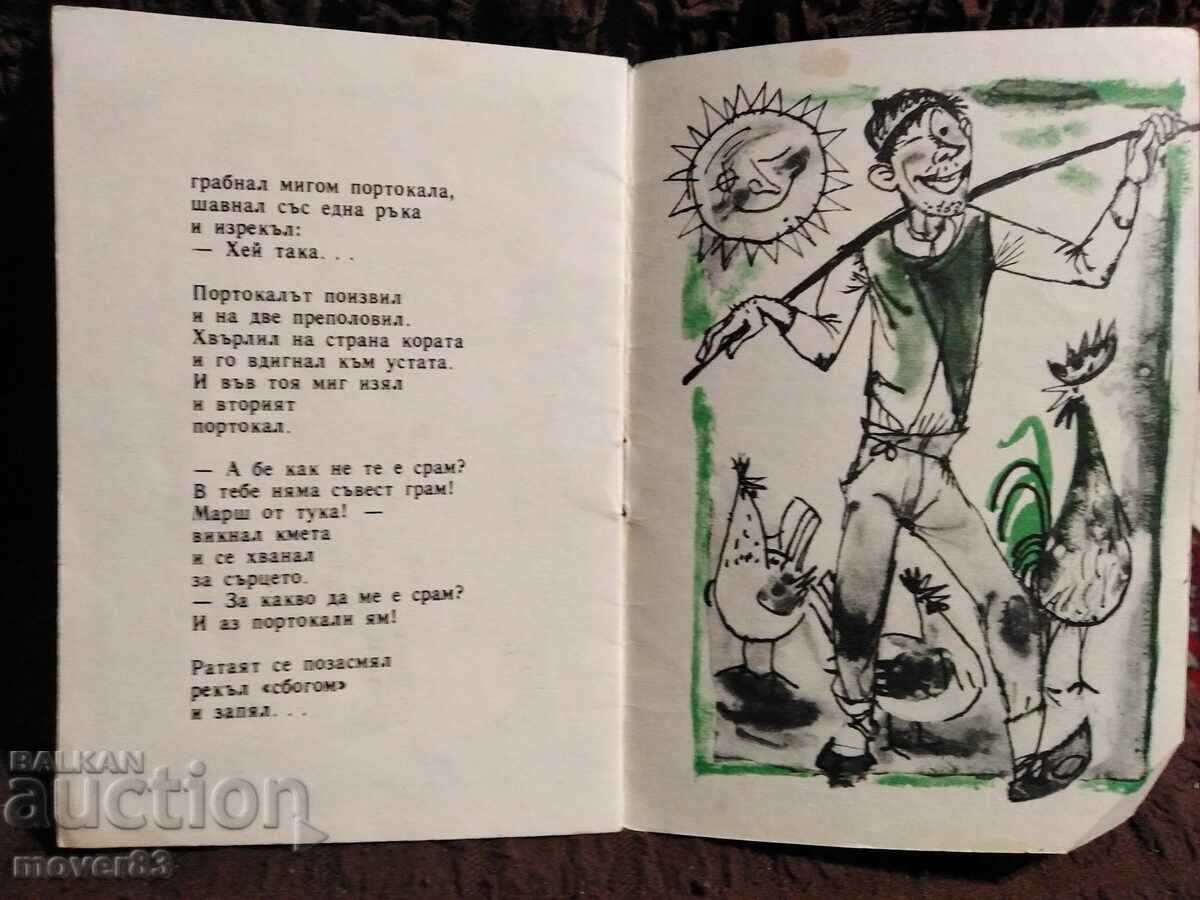 грабнал мигом портокала,
шавнал със една ръка
и изрекъл:
— Хей така. . .
Портокалът поизвил
и на две преполовил.
Хвърлил на страна кората
и го вдигнал към устата.
И във тоя миг изял
и вторият
портокал.
— А бе как не те е срам?
В тебе няма съвест грам!
Марш от тука! —
викнал кмета
и се хванал
за сърцето.
— За какво да ме е срам?
И аз портокали ям!
Ратаят се позасмял
рекъл «сбогом»
и запял. . .
BALKAN
auction
mover83